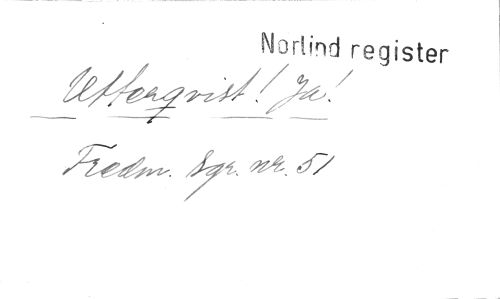 Norlind register
Utterqvist! Ja!
Fredm. Sgr. nr. 51